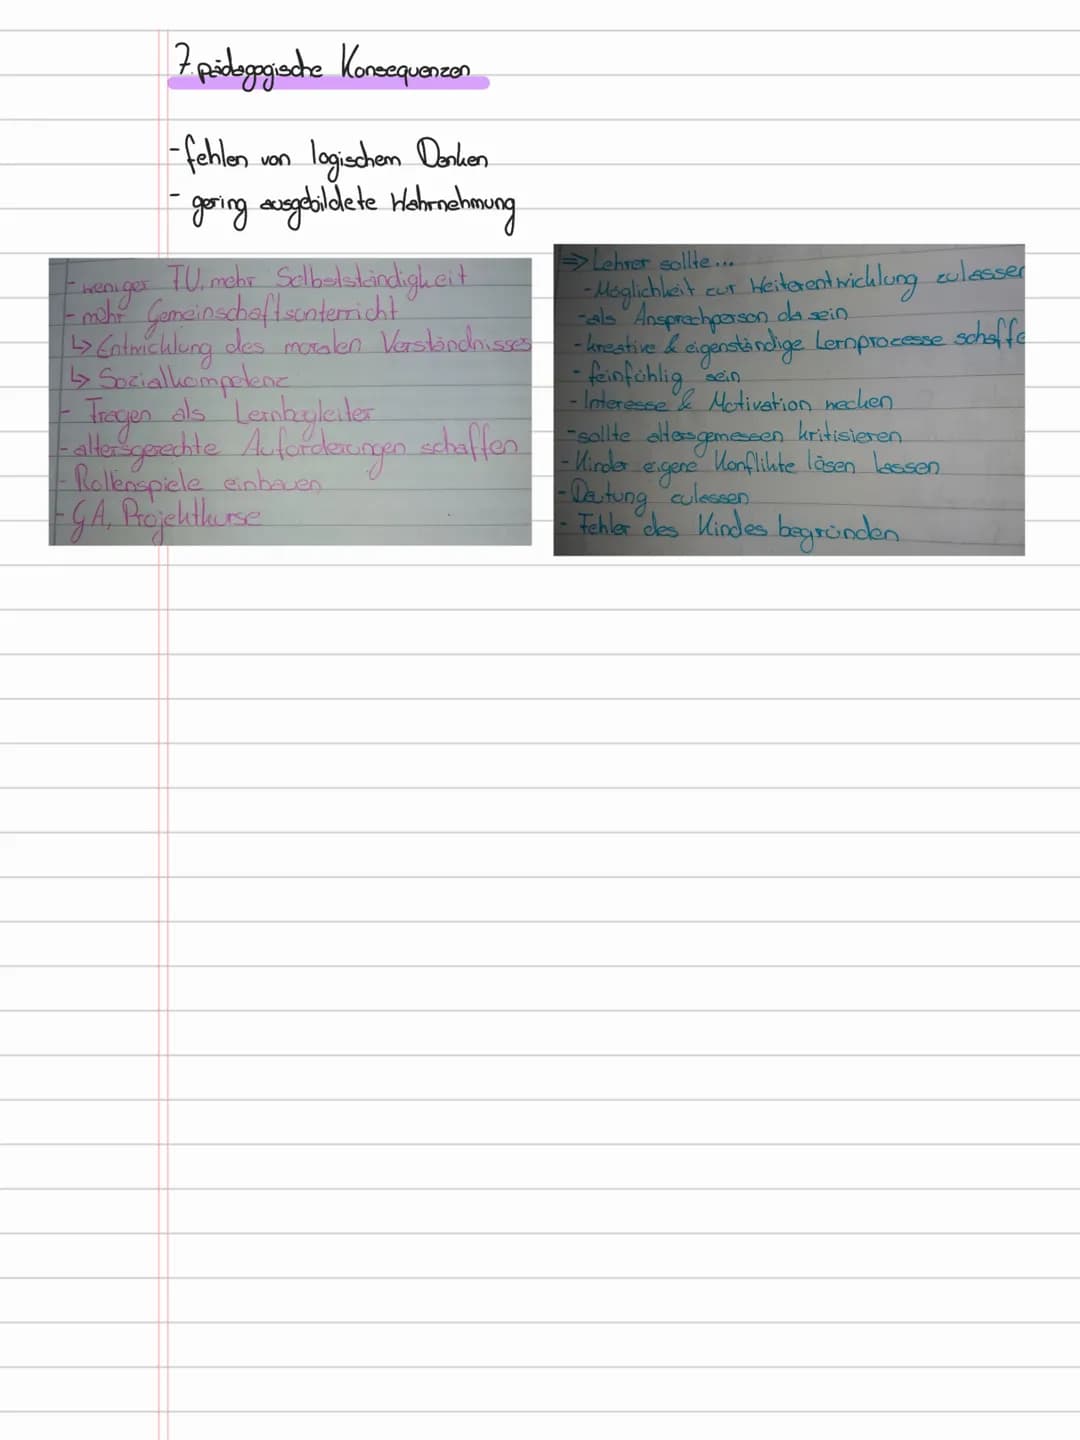 7. pädagogische Konsequenzen
- fehlen von logischem Denken
- gering ausgebildete Wahrnehmung
- weniger TU, mehr Selbstständigkeit
- mehr Gemeinschaftsunterricht
↳ Entwicklung des moralen Verständnisses
↳ Sozialkompetenz
- Fragen als Lernbegleiter
- altersgerechte Auforderungen schaffen
- Rollenspiele einbauen
- GA, Projektkurse
=> Lehrer sollte...
- Möglichkeit zur Weiterentwicklung zulassen
- als Ansprechperson da sein
- kreative & eigenständige Lernprozesse schaffe
- feinfühlig sein
- Interesse & Motivation wecken
- sollte altersgemessen kritisieren
- Kinder eigene Konflikte lösen lassen
- Deutung zulassen
- Fehler des Kindes begründen